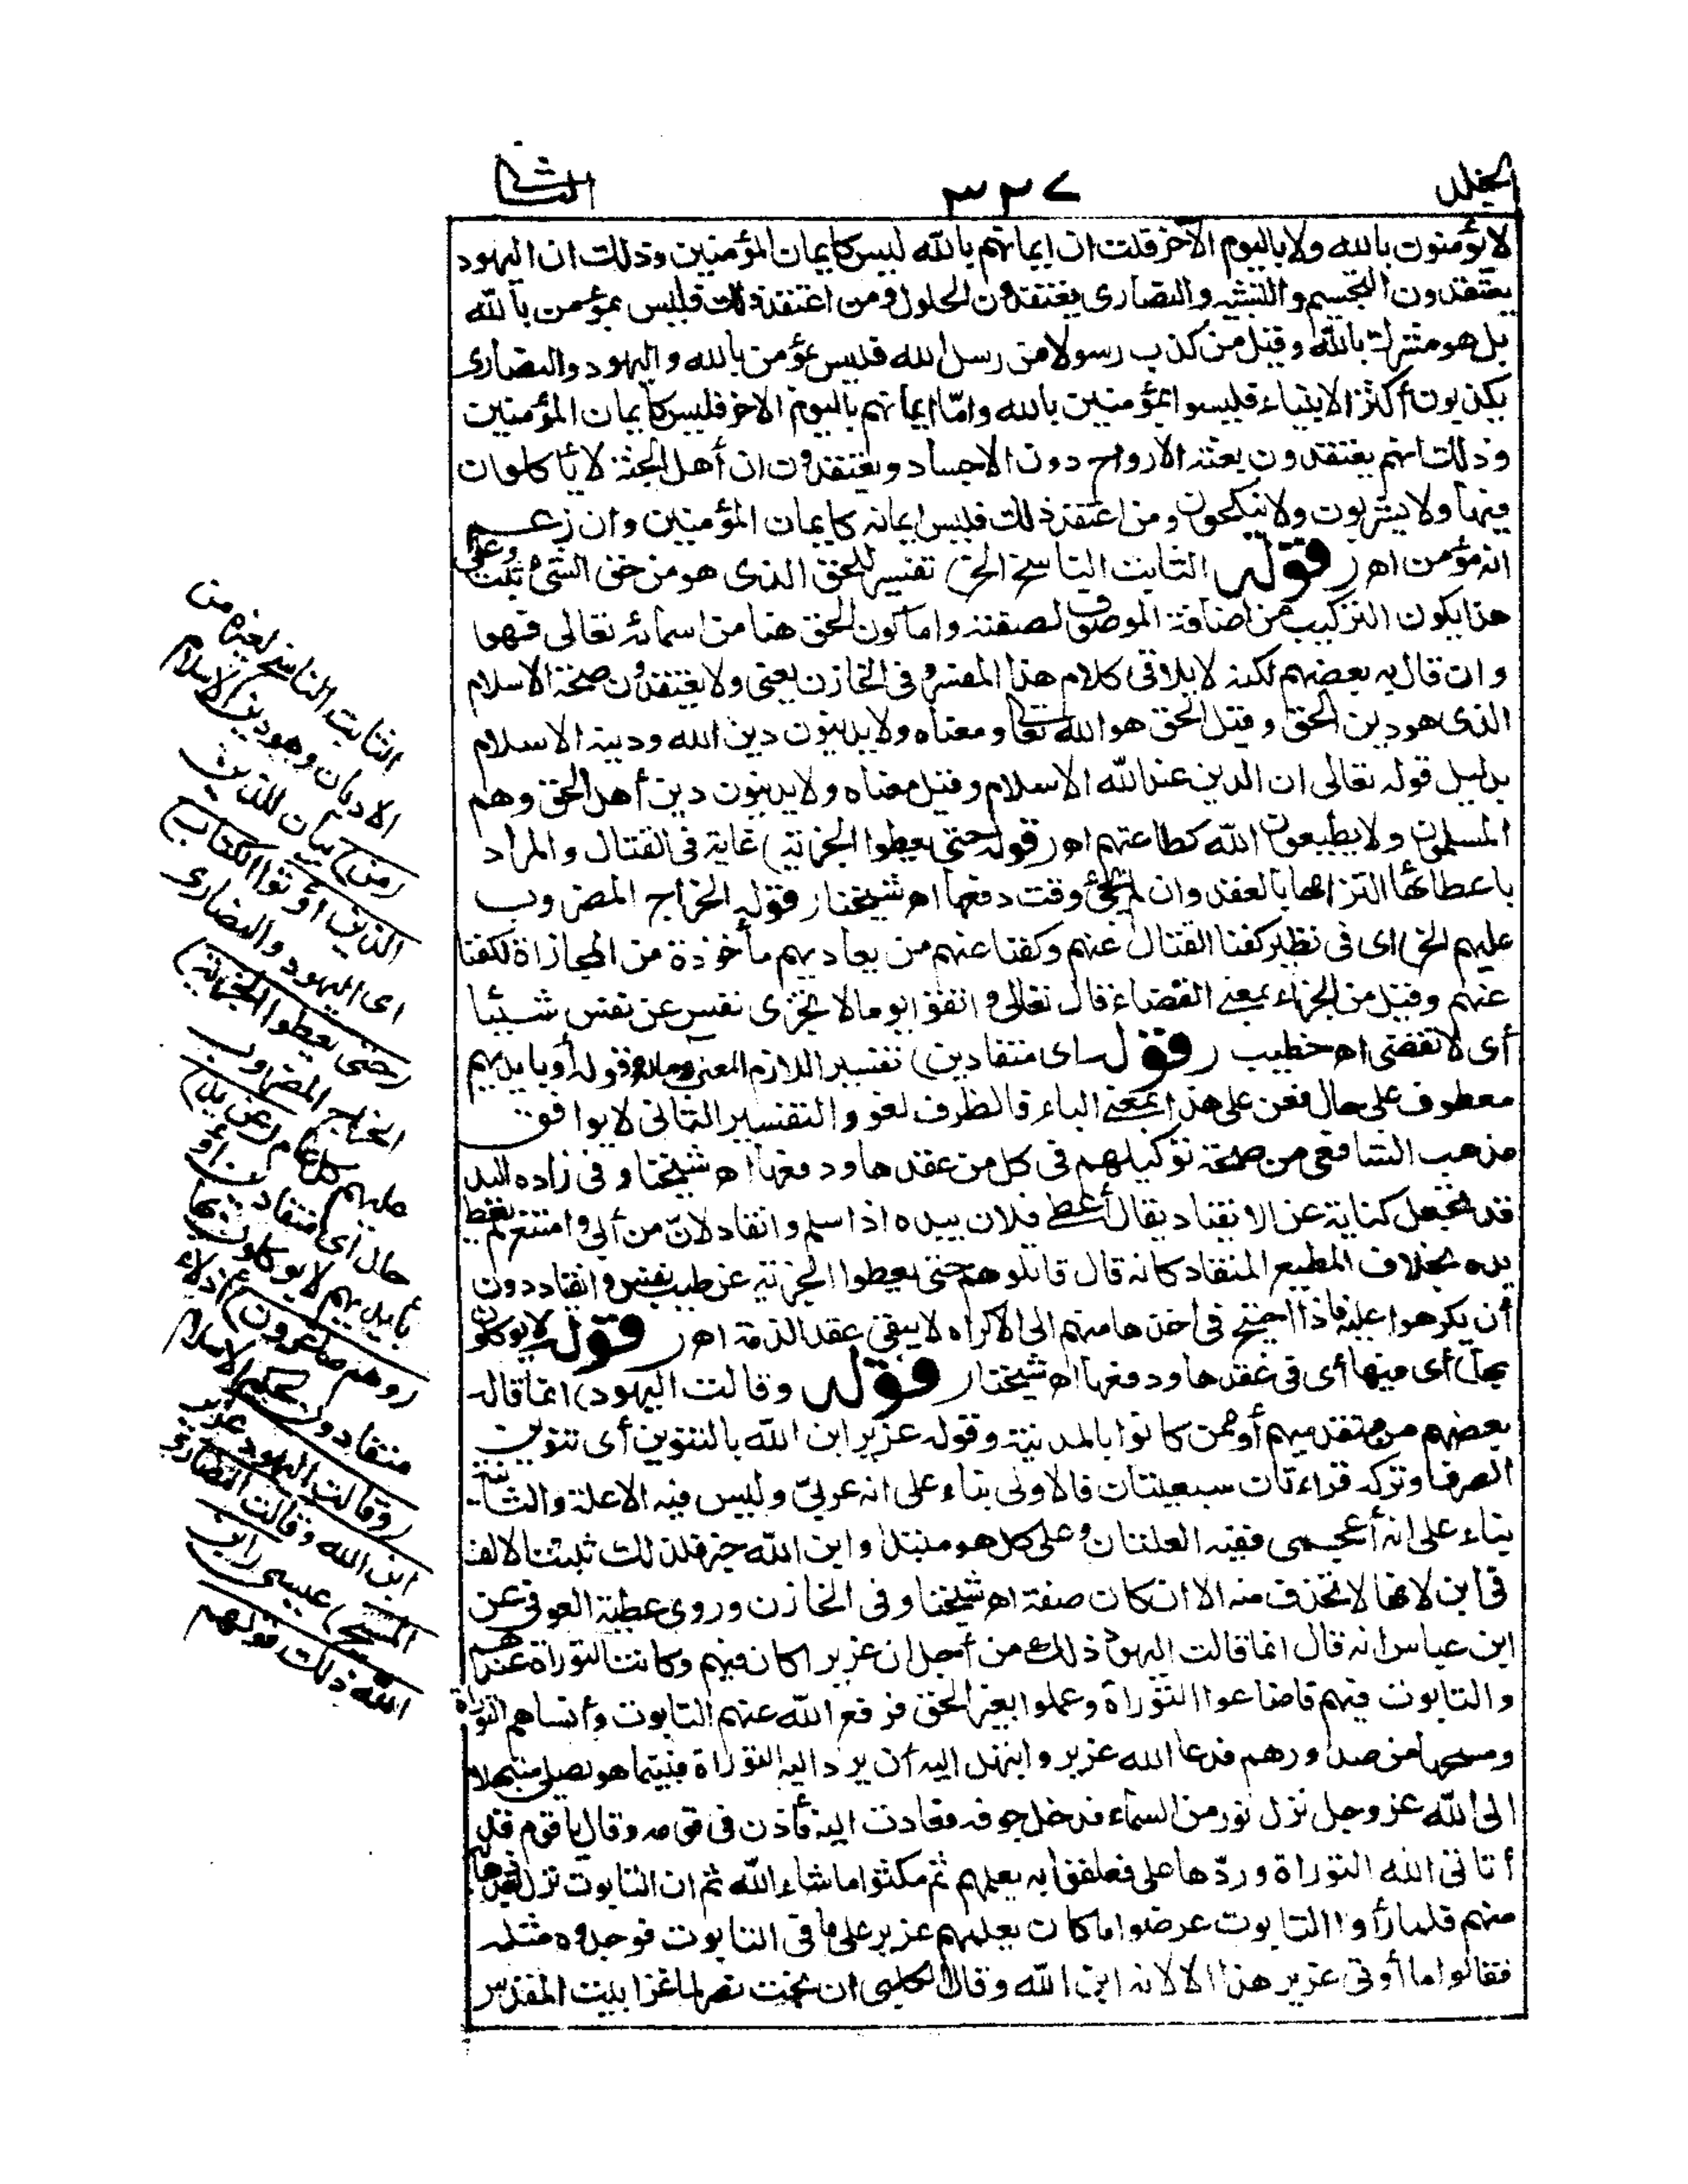 الجلد
٣٢٧
الثانى
لا يؤمنون بالله ولا باليوم الآخر قلت ان ايمانهم بالله ليس كايمان المؤمنين وذلك ان اليهود
يعتقدون التجسيم والتشبيه والنصارى يعتقدون الحلول ومن اعتقد ذلك فليس بمؤمن بالله
بل هو مشرك بالله وقيل من كذب رسولا من رسل الله فليس بمؤمن بالله واليهود والنصارى
يكذبون أكثر الانبياء فليسوا بمؤمنين بالله وامّا ايمانهم باليوم الاخر فليس كايمان المؤمنين
وذلك انهم يعتقدون بعثة الارواح دون الاجساد ويعتقدون ان أهل الجنة لا يأكلون
فيها ولا يشربون ولا ينكحون ومن اعتقد ذلك فليس ايمانه كايمان المؤمنين وان زعم
انه مؤمن اهـ (قوله الثابت الناسخ الخ) تفسير للحق الذى هو من حق الشئ ثبت وعلى
هذا يكون التركيب من اضافة الموصوف لصفته واما كون الحق هنا من اسمائه تعالى فهو
وان قال به بعضهم لكنه لا يلاقى كلام هذا المفسر وفى الخازن يعنى ولا يعتقدون صحة الاسلام
الذى هو دين الحق وقيل الحق هو الله تعالى ومعناه ولا يدينون دين الله ودينه الاسلام
بدليل قوله تعالى ان الدين عند الله الاسلام وقيل معناه ولا يدينون دين أهل الحق وهم
المسلمون ولا يطيعون الله كطاعتهم اهـ (قوله حتى يعطوا الجزية) غاية فى القتال والمراد
باعطائها التزامها بالعقد وان لم يجئ وقت دفعها اهـ شيخنا (قوله الخراج المضروب
عليهم الخ) اى فى نظير كفنا القتال عنهم وكفنا عنهم من يعاديهم مأخوذة من المجازاة لكفنا
عنهم وقيل من الجزاء بمعنى القضاء قال تعالى واتقوا يوما لا تجزى نفس عن نفس شيئا
أى لا تقضى اهـ خطيب (قوله اى منقادين) تفسير اللازم المعنى وقوله أو بايديهم
معطوف على حال فعن على هذا بمعنى الباء فالظرف لغو والتفسير الثانى لا يوافق
مذهب الشافعى من صحة توكيلهم فى كل من عقدها ودفعها اهـ شيخنا وفى زاده اليد
قد تجعل كناية عن الانقياد يقال أعطى فلان بيده اذا سلم وانقاد لانّ من أبى وامتنع لم يعط
يده بخلاف المطيع المنقاد كانه قال قاتلوهم حتى يعطوا الجزية عن طيب نفس وانقياد دون
أن يكرهوا عليه فاذا احتيج فى اخذها منهم الى الاكراه لا يبقى عقد الذمة اهـ (قوله لا يوكلون
بها) أى فيها أى فى عقدها ودفعها اهـ شيخنا (قوله وقالت اليهود) انما قاله
بعضهم من متقدميهم أو ممن كانوا بالمدينة وقوله عزير ابن الله بالتنوين أى تنوين
الصرف وتركه قراءتان سبعيتان فالاولى بناء على انه عربىّ وليس فيه الا علة والثانية
بناء على انه أعجمى ففيه العلتان وعلى كل هو مبتدأ وابن الله خبر فلذلك ثبتت الالف
فى ابن لانها لا تحذف منه الا ان كان صفة اهـ شيخنا وفى الخازن وروى عطية العوفى عن
ابن عباس انه قال انما قالت اليهود ذلك من أجل ان عزيرا كان فيهم وكانت التوراة عندهم
والتابوت فيهم فاضاعوا التوراة وعملوا بغير الحق فرفع الله عنهم التابوت وأنساهم التوراة
ومسحها من صدورهم فدعا الله عزير وابتهل اليه أن يرد اليه التوراة فبينما هو يصلى مبتهلا
الى الله عز وجل نزل نور من السماء فدخل جوفه فعادت اليه فأذن فى قومه وقال يا قوم قد
أتانى الله التوراة وردّها على فعلقوا به يعلمهم ثم مكثوا ما شاء الله ثم ان التابوت نزل بعد ذهابه
منهم فلما رأوا التابوت عرضوا ما كان يعلمهم عزير على ما فى التابوت فوجدوه مثله
فقالوا ما أوتى عزير هذا الا لانه ابن الله وقال الكلبى ان بخت نصر لما غزا بيت المقدس
الثابت الناسخ لغيره من
الاديان وهو دين الاسلام
(من) بيان للذين
الذين أوتوا الكتاب)
اى اليهود والنصارى
(حتى يعطوا الجزية)
الخراج المضروب
عليهم كل عام (عن يد)
حال أى منقادين أو
بأيديهم لا يوكلون بها
(وهم صاغرون) أذلاء
منقادون لحكم الاسلام
(وقالت اليهود عزير
ابن الله وقالت النصارى
المسيح) عيسى (ابن
الله ذلك قولهم